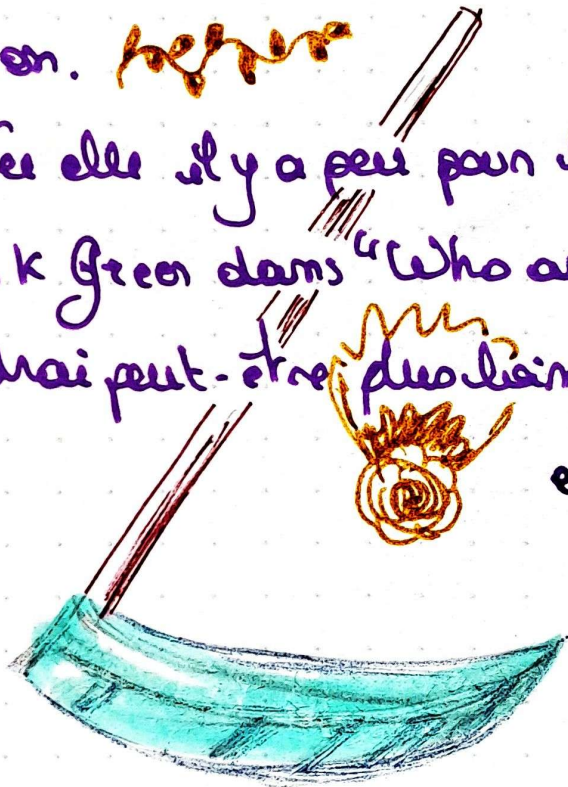 on.
elle il y a peu pour
k Green dans "Who a
rai peut-être plus loin
e